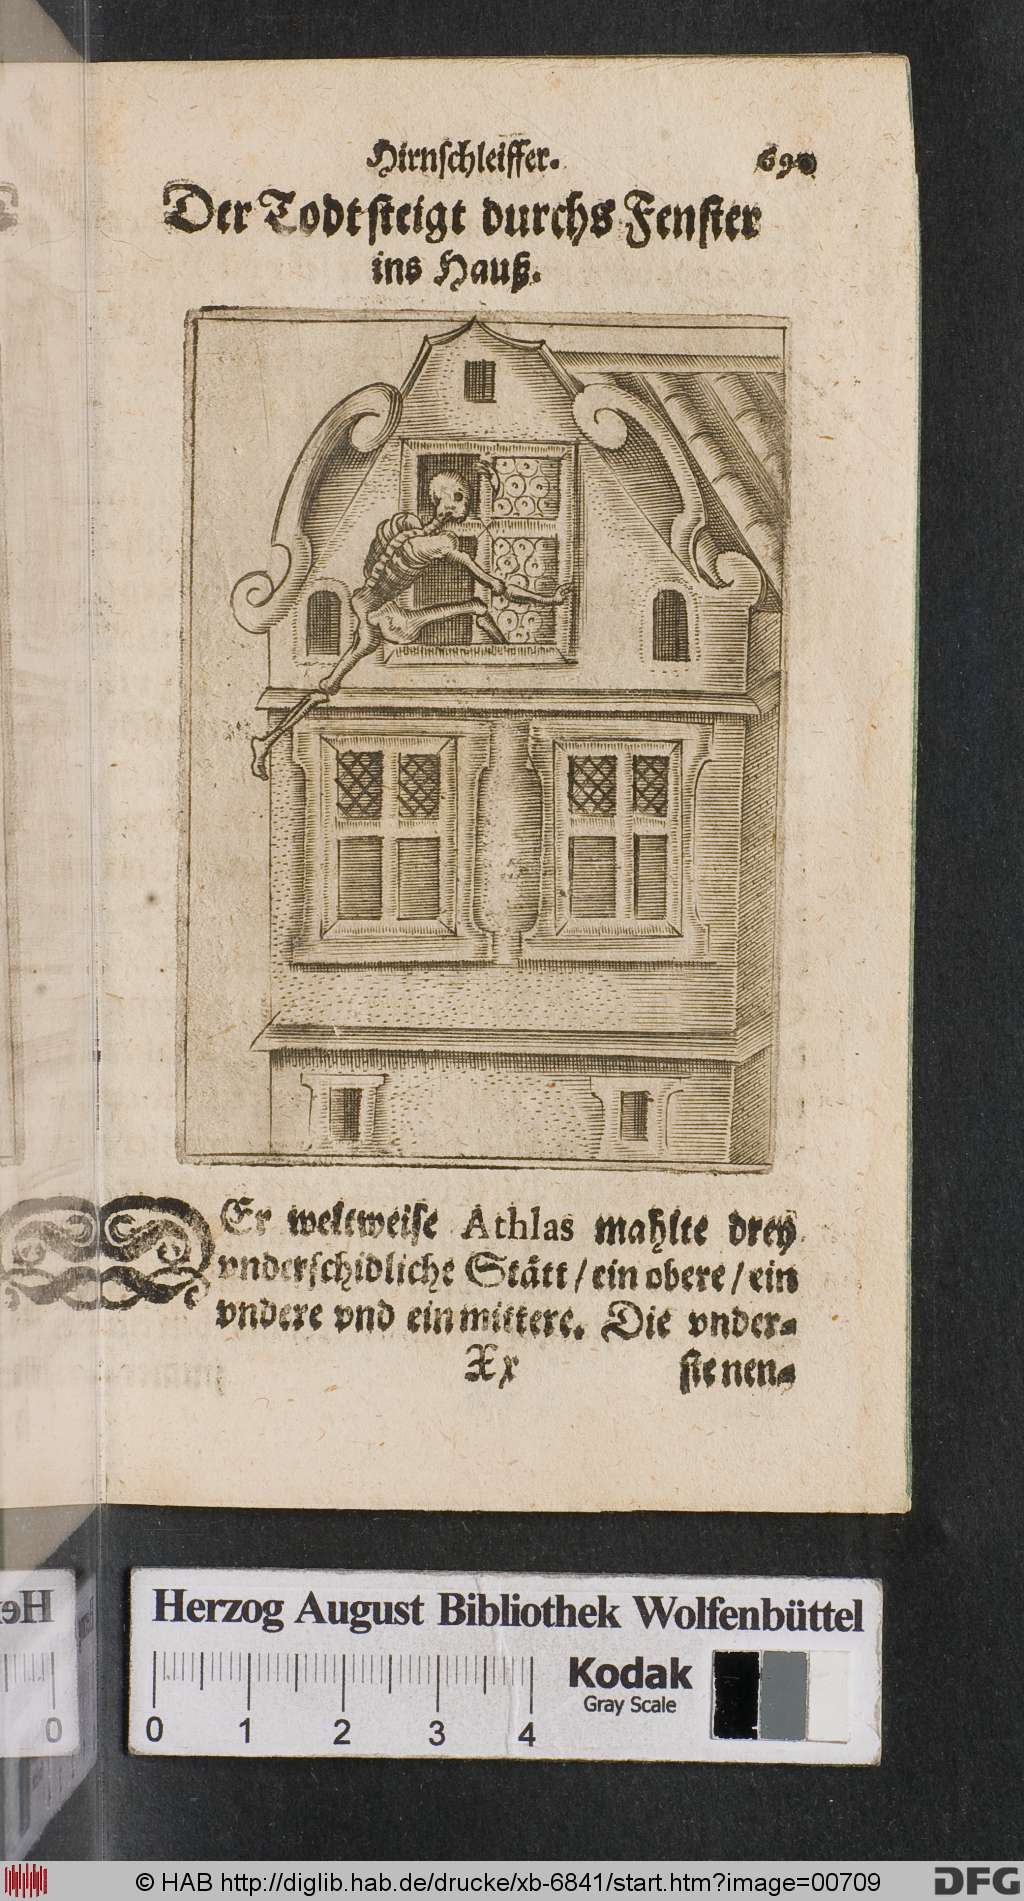 Hirnschleiffer.
Der Todt steigt durchs Fenster
ins Hauß.
Er weltweise Athlas mahlte drey
vnderschidliche Stätt / ein obere / ein
vndere vnd ein mittere. Die vnder⸗
Xx
ste nen⸗
Herzog August Bibliothek Wolfenbüttel
Kodak
Gray Scale
0 1 2 3 4
0
© HAB http://diglib.hab.de/drucke/xb-6841/start.htm?image=00709
DFG